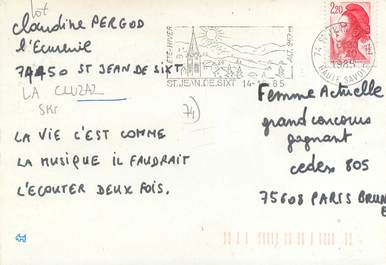 lot
Claudine PERGOD
l'Ecurenil
74450 ST JEAN DE SIXT
LA CLUZAZ
SKI
74)
LA VIE C'EST COMME
LA MUSIQUE IL FAUDRAIT
L'ECOUTER DEUX FOIS.
ETE-HIVER
ALT. 963 m
ST. JEAN. DE. SIXT 14-
85
2,20
74 ST JE
20
1985
HAUTE SAVOIE
Femme Actuelle
grand concours
gagnant
cedex 805
75608 PARIS BRUN